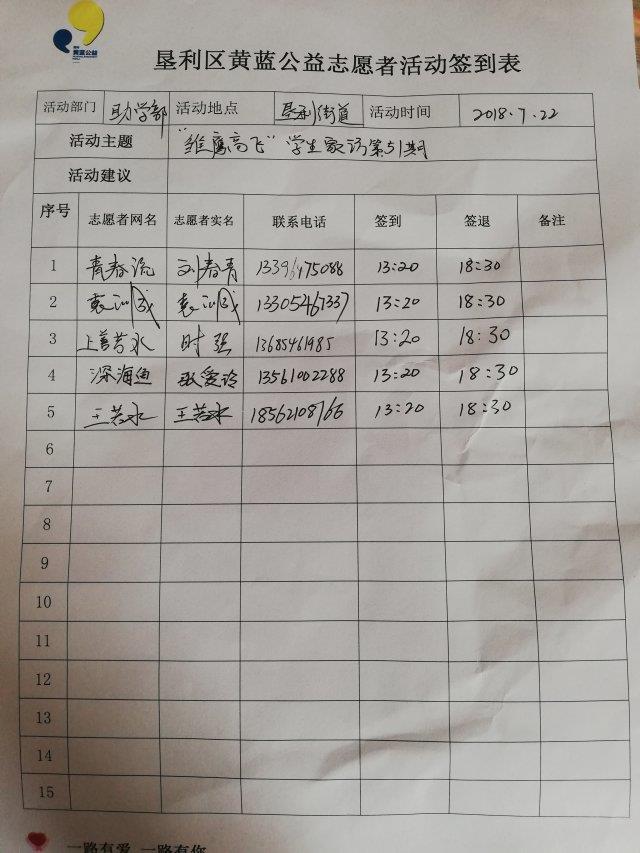 黄蓝公益
垦利区黄蓝公益志愿者活动签到表
活动部门 助学部 活动地点 垦利街道 活动时间 2018.7.22
活动主题 "雏鹰高飞"学生家访第51期
活动建议
序号 志愿者网名 志愿者实名 联系电话 签到 签退 备注
1 青春流 刘春青 13396475088 13:20 18:30
2 13305467337 13:20 18:30
3 上善若水 时强 13685461985 13:20 18:30
4 深海鱼 13561002288 13:20 18:30
5 王若水 王若水 18562108766 13:20 18:30
6
7
8
9
10
11
12
13
14
15
一路有爱 一路有你